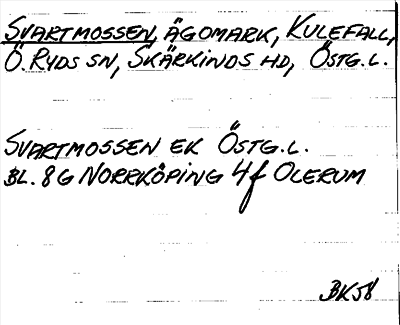 SVARTMOSSEN, ÄGOMARK, KULEFALL,
Ö. RYDS SN, SKÄRKINDS HD, ÖSTG.L.
SVARTMOSSEN EK ÖSTG.L.
BL. 8G NORRKÖPING 4f OLERUM
BK58